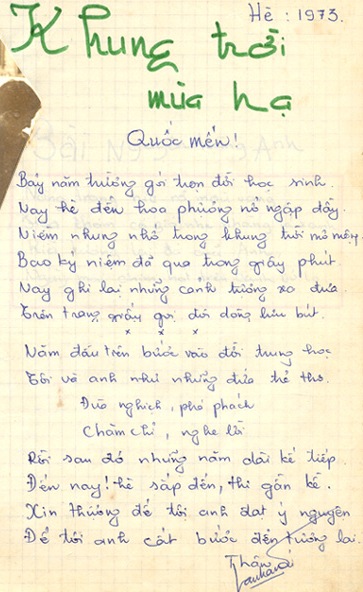 Hè : 1973.
Khung trời
mùa hạ
Quốc mến !
Bảy năm trường gói trọn đời học sinh.
Nay hè đến hoa phượng nở ngập đầy.
Niềm nhung nhớ trong khung trời mơ mộng
Bao kỷ niệm đã qua trong giây phút
Nay ghi lại những canh trường xa xưa.
Trên trang giấy gọi đôi dòng lưu bút.
x x x
Năm đầu tiên bước vào đời trung học
Tôi và anh như những đứa trẻ thơ.
Đùa nghịch, phá phách
Chăm chỉ, nghe lời
Rồi sau đó những năm dài kế tiếp.
Đến nay! hè sắp đến, thi gần kề.
Xin thượng đế tôi anh đạt ý nguyện
Để tôi anh cất bước đến tương lai.
Thân ái